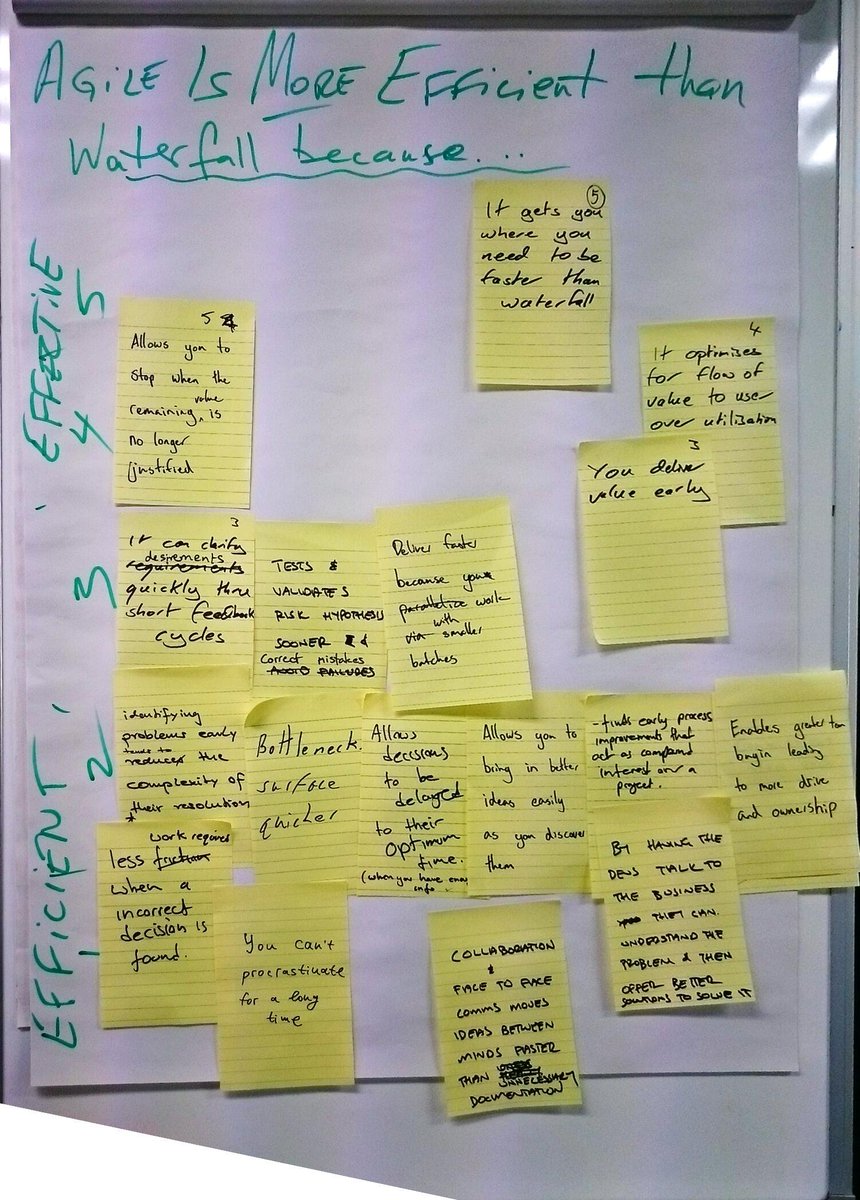 AGILE IS MORE EFFICIENT than
Waterfall because...
EFFICIENT, . EFFECTIVE
1 2 3 4 5
5
It gets you
where you
need to be
faster than
waterfall
5
Allows you to
stop when the
value
remaining is
no longer
justified
4
It optimises
for flow of
value to user
over utilisation
3
You deliver
value early
3
It can clarify
desirements
requirements
quickly thru
short feedback
cycles
TESTS &
VALIDATES
RISK HYPOTHESIS
SOONER &
Correct mistakes
FAILURES
Deliver faster
because you
parallelise work
with
via smaller
batches
identifying
problems early
tends to
reduces the
complexity of
their resolution
Bottleneck
surface
quicker
Allows
decisions
to be
delayed
to their
optimum
time.
(when you have
info
Allows you to
bring in better
ideas easily
as you discover
them
- finds early process
improvements that
act as compound
interest over a
project.
Enables greater team
buyin leading
to more drive
and ownership
work required
less friction
when a
incorrect
decision is
found.
You can't
procrastinate
for a long
time
COLLABORATION
&
FACE TO FACE
COMMS MOVES
IDEAS BETWEEN
MINDS FASTER
THAN
UNNECESSARY
DOCUMENTATION
BY HAVING THE
DEVS TALK TO
THE BUSINESS
THEY CAN
UNDERSTAND THE
PROBLEM & THEN
OFFER BETTER
SOLUTIONS TO SOLVE IT